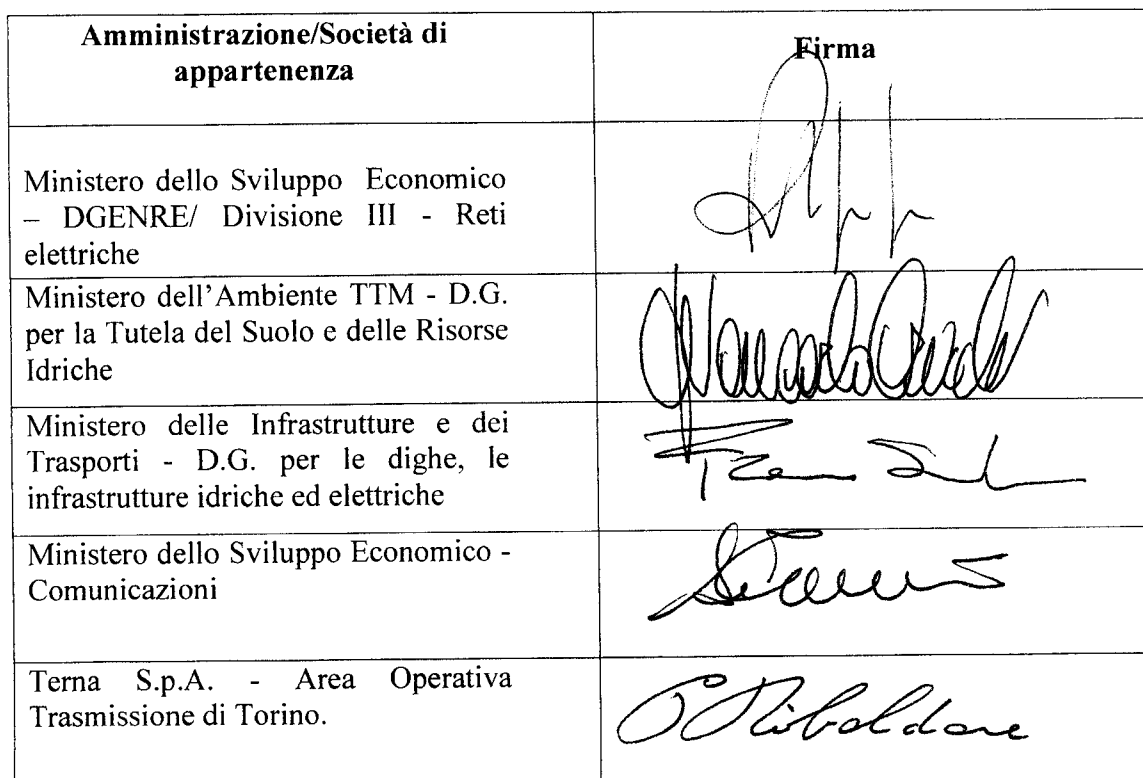 Amministrazione/Società di
appartenenza
Firma
Ministero dello Sviluppo Economico
– DGENRE/ Divisione III - Reti
elettriche
Ministero dell'Ambiente TTM - D.G.
per la Tutela del Suolo e delle Risorse
Idriche
Ministero delle Infrastrutture e dei
Trasporti - D.G. per le dighe, le
infrastrutture idriche ed elettriche
Ministero dello Sviluppo Economico -
Comunicazioni
Terna S.p.A. - Area Operativa
Trasmissione di Torino.